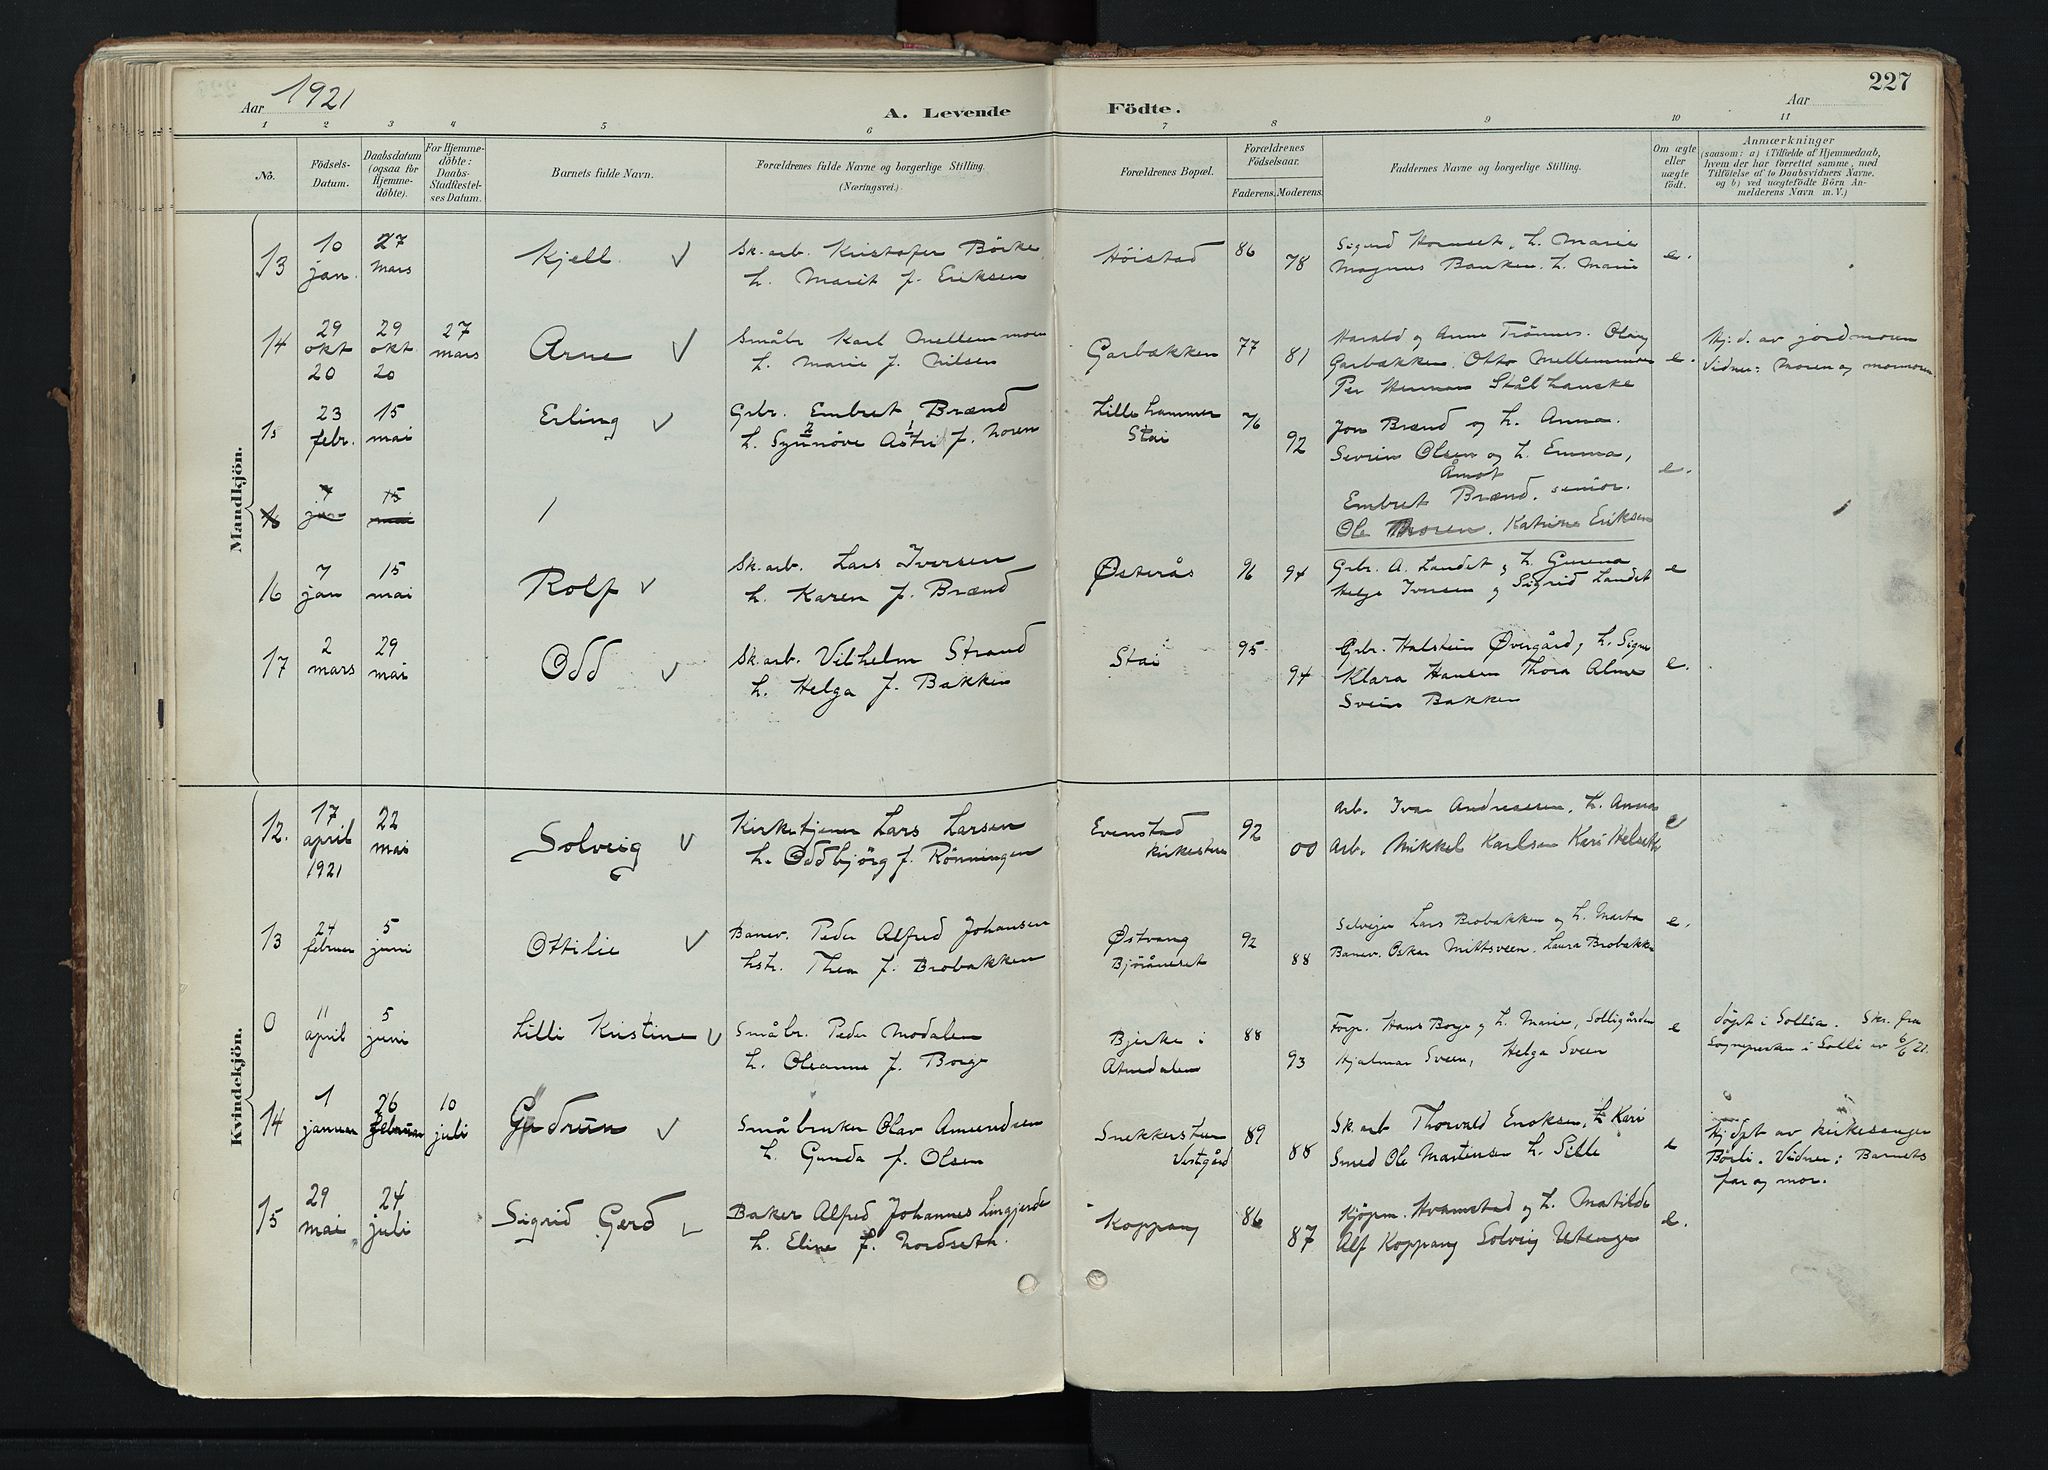 Aar 1921
A. Levende Födte.
Aar
227
1 2 3 4 5 6 7 8 9 10 11
No.
Födsels-Datum.
Daabsdatum (ogsaa for Hjemme-döbte).
For Hjemme-döbte: Daabs-Stadfæstel-ses Datum.
Barnets fulde Navn.
Forældrenes fulde Navne og borgerlige Stilling.
(Næringsvei.)
Forældrenes Bopæl.
Forældrenes Födselsaar.
Faderens. Moderens.
Faddernes Navne og borgerlige Stilling.
Om ægte eller uægte födt.
Anmærkninger
(saasom: a) i Tilfælde af Hjemmedaab, hvem der har forrettet samme, med Tilföielse af to Daabsvidners Navne, og b) ved uægtefödte Börn An-melderens Navn m. V.)
Mandkjön.
13 10 jan. 27 mars Kjell Sk.arb. Kristofer Börke Høistad 86 78 Sigurd Hornset, h. Marie e.
h. Marit f. Eriksen Magnus Bakken h. Marie
14 29 okt 20 29 okt 20 27 mars Arne Småbr Karl Mellemmoen Garbækken 77 81 Harald og Anne Trönnes. Olav e. Hj.d. av jordmoren
h. Marie f. Nilsen Garbækken. Otto Mellemmoen Vidner: Moren og mormoren
Per Herman Stålhanske
15 23 febr. 15 mai Erling Grbr. Embret Brænd Lillehammer 76 92 Jon Brænd og h. Anna.
h. Synnöve Astri f. Noren Stai Severin Olsen og h. Emma, e.
Åmot
Embret Brænd. senior.
16 7 jan 15 mai Ole Thoren. Katrine Eriksen
16 7 jan 15 mai Rolf Sk.arb. Lars Iversen Østerås 96 94 Grbr. A. Landet og h. Gurena e
h. Karen f. Brænd Helge Iversen og Sigrid Landet
17 2 mars 29 mai Odd Sk.arb. Vilhelm Strand Stai 95 94 Grbr. Halstein Øvergård, h. Signe
h. Helga f. Bakken Klara Hansen Thora Alme e.
Svein Bakken
Kvindekjön.
12. 17 april 1921 22 mai Solveig Kirketjener Lars Larsen Evenstad 92 00 Arb. Ivar Andreassen, h. Anna e
h. Oddbjörg f. Rönningen kirkestuen Arb. Mikkel Karlsen Kari Helseth
13 24 februar 5 juni Ottilie Banev. Peder Alfred Johansen Østvang 92 88 Selveier Lars Brobakken og h. Marta e.
hstr. Thea f. Brobakken Björåneset Banev. Oskar Mittsveen. Laura Brobakken
0 11 april 5 juni Lilli Kristine Småbr. Peder Modalen Bjerke i 88 93 Forp. Hans Borge og h. Marie, Solligården e döpt i Sollia. Skr. fra
h. Oleanna f. Borge Atnedalen Hjalmar Sveen, Helga Sveen Sognepresten i Solli av 6/6 21.
14 1 januar 26 februar 10 juli Gudrun Småbruker Olav Amundsen Snekkerstuen 89 88 Sk.arb Thorvald Enoksen, h. Kari Hj.dpt av kirkesanger
h. Gunda f. Olsen Vestgård Smed Ole Martinsen h. Sille e Börli. Vidner: Barnets
far og mor.
15 29 mai 24 juli Sigrid Gerd Baker Alfred Johannes Langjerde Koppang 86 87 Kjöpm. Hvamstad og h. Matilde e.
h. Eline f. Nordseth. Alf Koppang Solveig Utengen